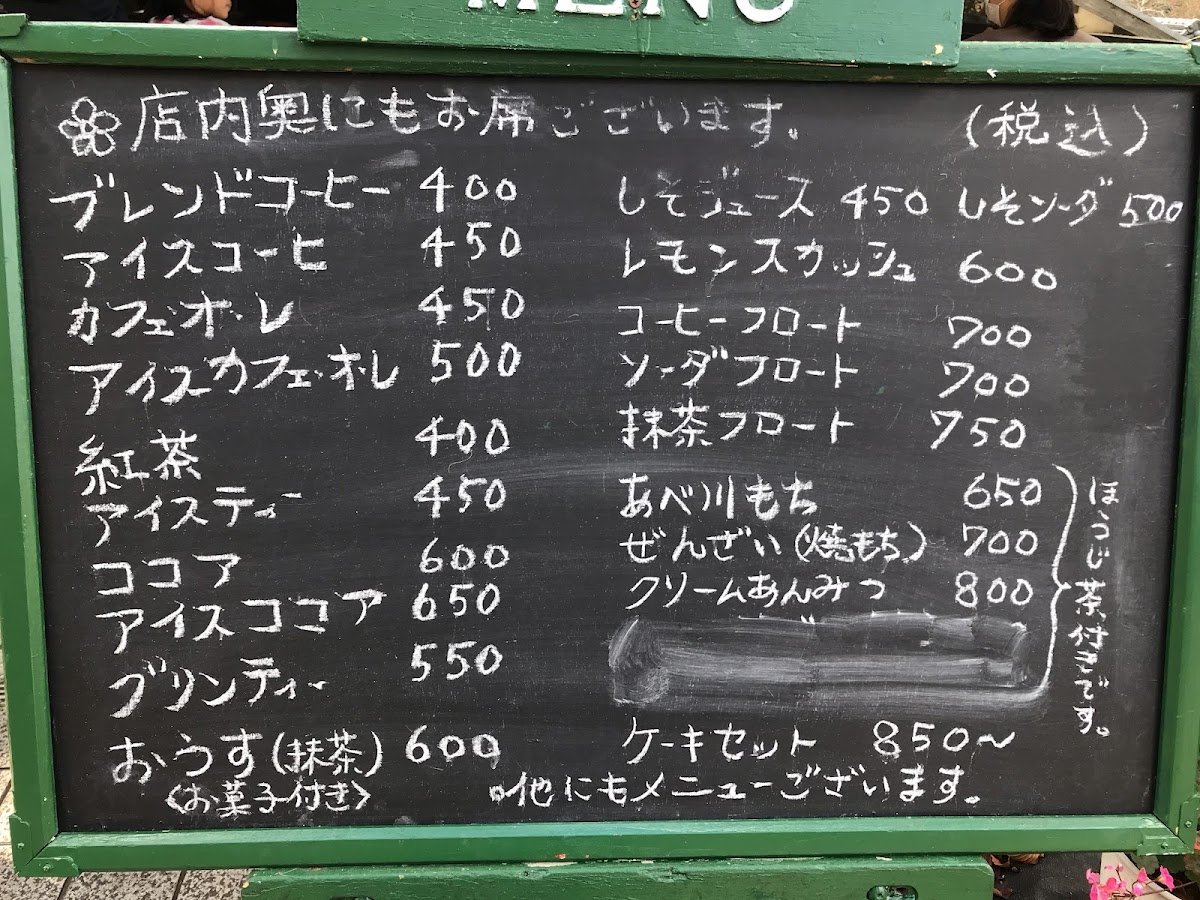 MENU
店内奥にもお席ございます。
(税込)
ブレンドコーヒー 400
アイスコーヒ 450
カフェ・オ・レ 450
アイスカフェ・オ・レ 500
紅茶 400
アイスティー 450
ココア 600
アイスココア 650
ブリンティー 550
おうす(抹茶) 600
<お菓子付き>
しそジュース 450 しそソーダ 500
レモンスカッシュ 600
コーヒーフロート 700
ソーダフロート 700
抹茶フロート 750
あべ川もち 650
ぜんざい(焼もち) 700
クリームあんみつ 800
ほうじ茶付きです。
ケーキセット 850~
他にもメニューございます。